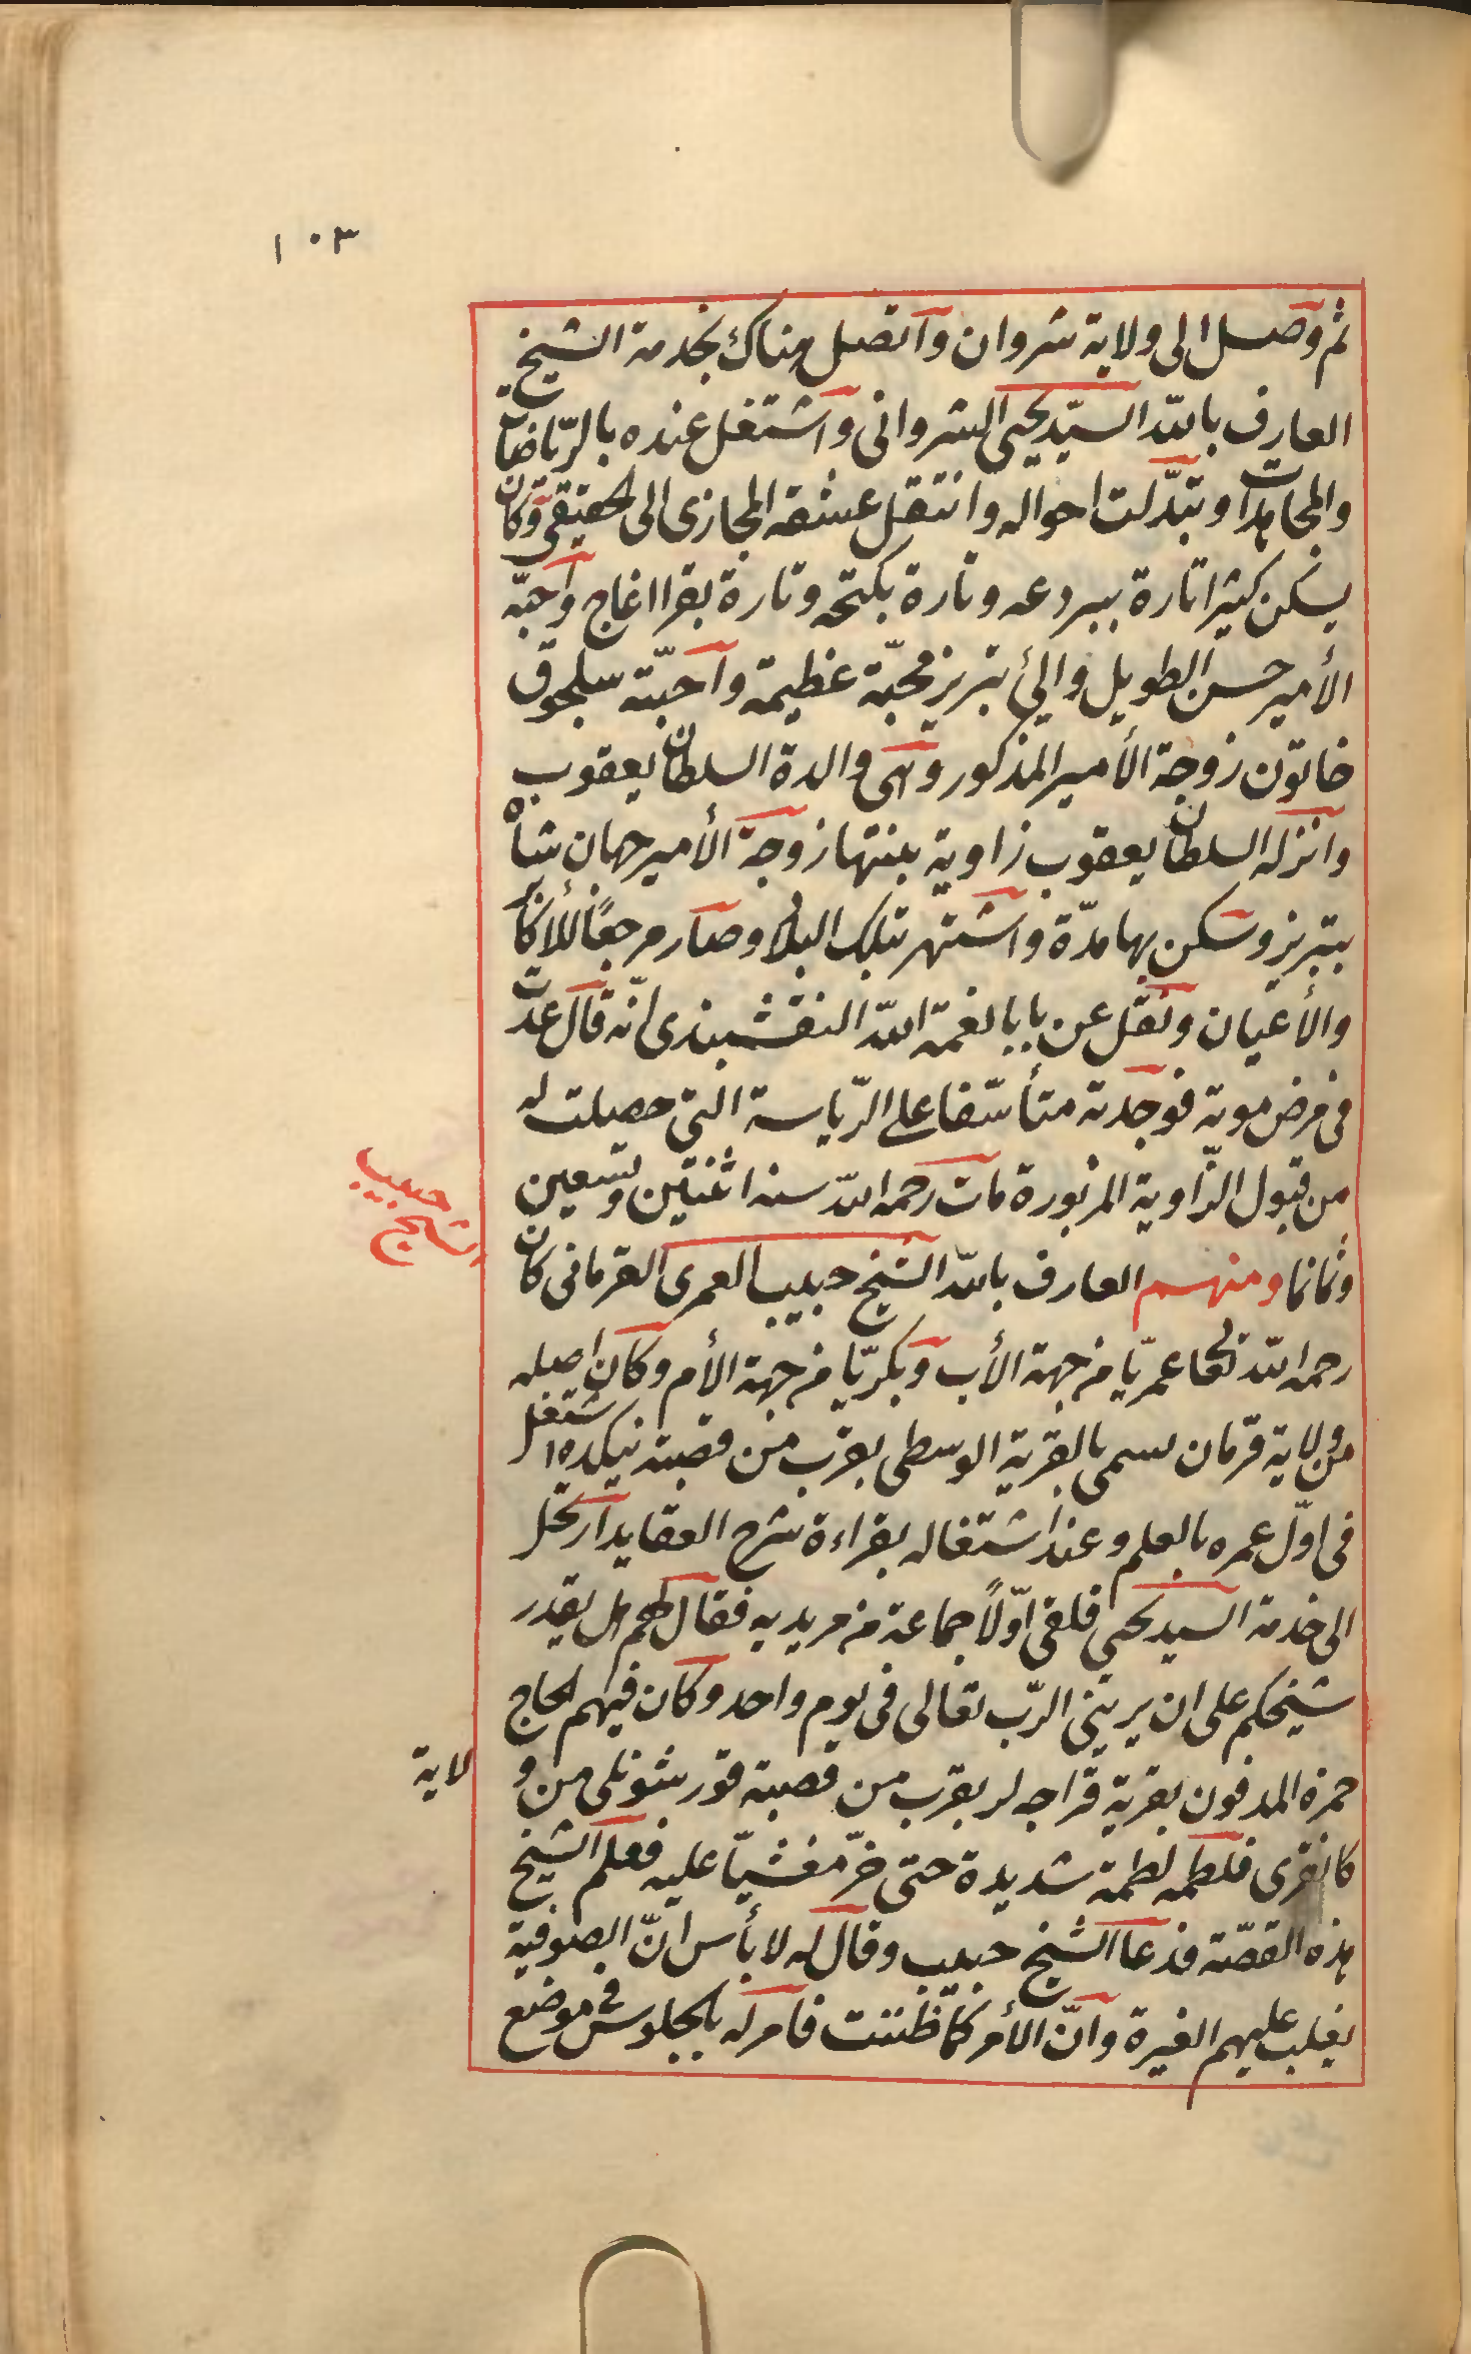 ١٠٣
ثم وصل الى ولاية شروان واتصل هناك بخدمة الشيخ
العارف بالله السيّد يحيى الشروانى واشتغل عنده بالرّياضات
والمجاهدات وتبدّلت احواله وانتقل عشقه المجازى الى الحقيقى وكان
يسكن كثيرا تارة ببردعه وتارة بكنجه وتارة بقرا اغاج واحبّه
الأمير حسن الطويل والئ تبريز محبّة عظيمة واحبّته سلجوق
خاتون زوجة الأمير المذكور وهى والدة السلطان يعقوب
وانزله السلطان يعقوب زاوية بنتها زوجة الأمير جهان شاه
بتبريز وسكن بها مدّة واشتهر بتلك البلاد وصار مرجعًا للأكابر
والأعيان ونقل عن بابا نعمة الله النقشبندى انّه قال عدت
فى مرض موته فوجدته متأسّفا على الرّياسة التى حصلت له
من قبول الزّاوية المزبورة مات رحمه الله سنه اثنتين وتسعين
وثمانما ومنهم العارف بالله الشيخ حبيب العمرى القرمانى كان
رحمه الله تعالى عمريّا من جهة الأب وبكريّا من جهة الأم وكان اصله
من ولاية قرمان يسمى بالقرية الوسطى بقرب من قصبة نيكده اشتغل
فى اوّل عمره بالعلم وعند اشتغاله بقراءة شرح العقايد ارتحل
الى خدمة السيد يحيى فلقى اوّلاً جماعة من مريديه فقال لهم هل يقدر
شيخكم على ان يرينى الرّب تعالى فى يوم واحد وكان فيهم الحاج
حمزه المدفون بقرية قراجه لر بقرب من قصبة قورشونلى من و
لاية
كانقرى فلطمه لطمة شديدة حتى خرّ مغشيّا عليه فعلم الشيخ
هذه القصّة فدعا الشيخ حبيب وقال له لا بأس انّ الصوفية
يغلب عليهم الغيرة وانّ الأمر كما ظننت فامر له بالجلوس فى موضع
الشيخ
حبيب